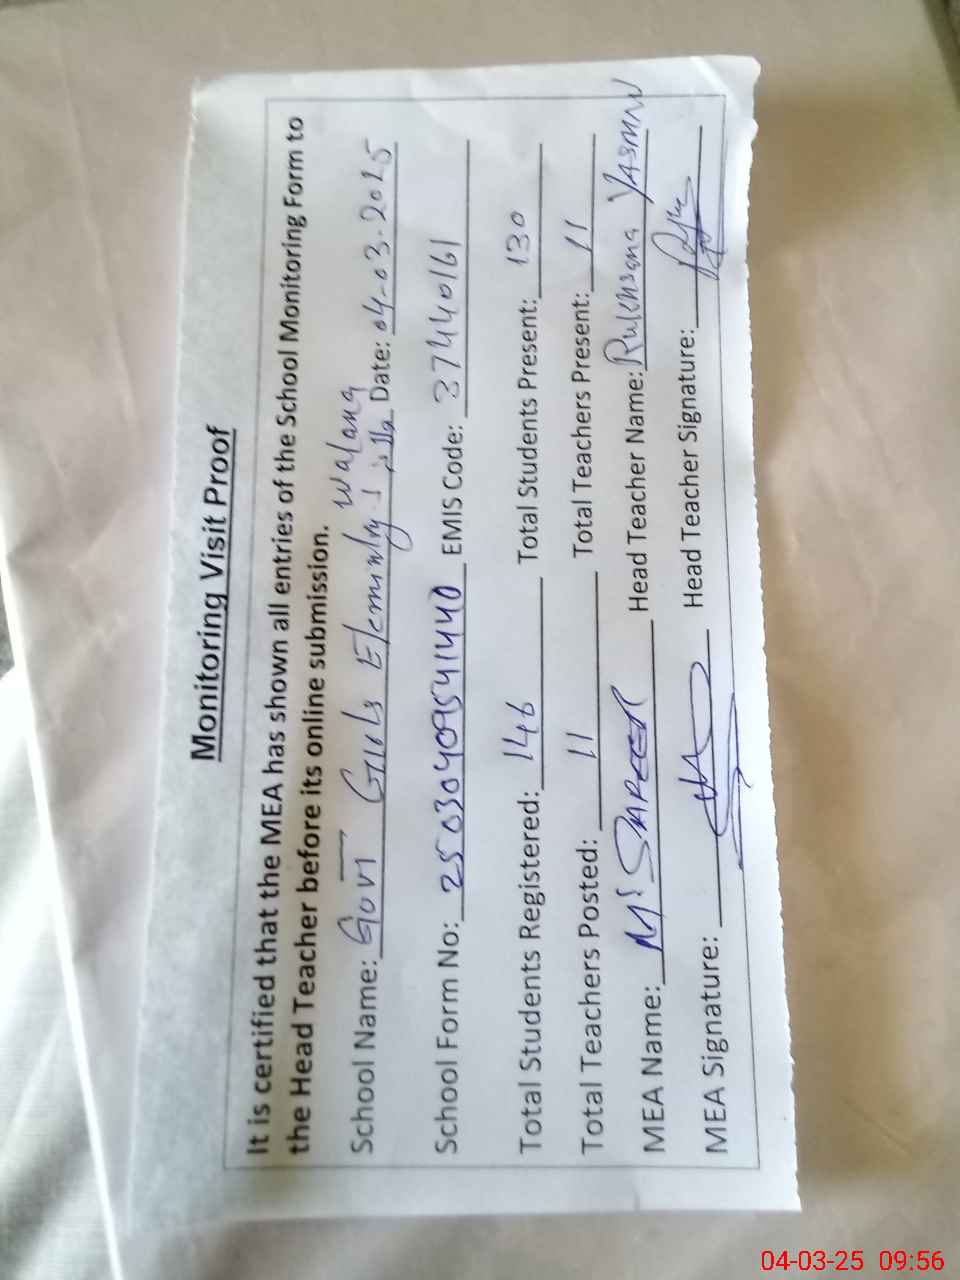 Monitoring Visit Proof
It is certified that the MEA has shown all entries of the School Monitoring Form to
the Head Teacher before its online submission.
School Name: Govt Girls Elementry Walana Date: 04-03-2025
School Form No: 25030409541440 EMIS Code: 37440161
Total Students Registered: 146 Total Students Present: 130
Total Teachers Posted: 11 Total Teachers Present: 11
MEA Name: M SAFEER Head Teacher Name: Rukhsana YASMIN
MEA Signature: Head Teacher Signature:
04-03-25 09:56